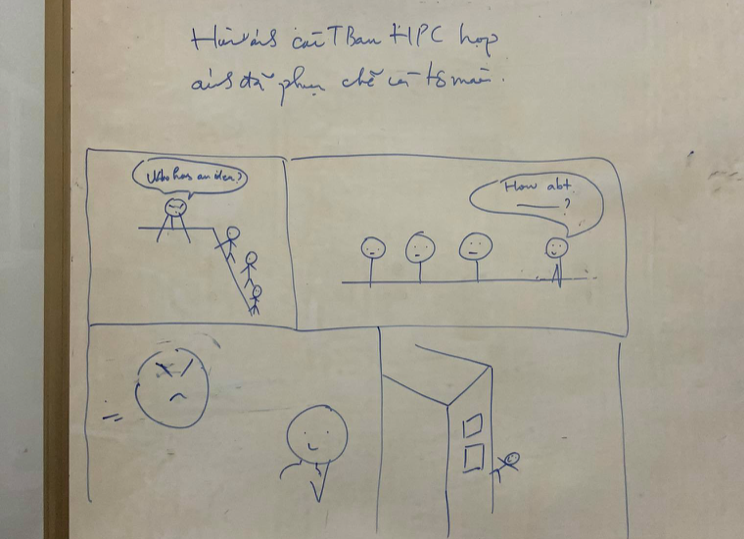 Hình ảnh cái TBan HPC họp
ảnh đã phục chế
Who has an idea?
How abt
____?